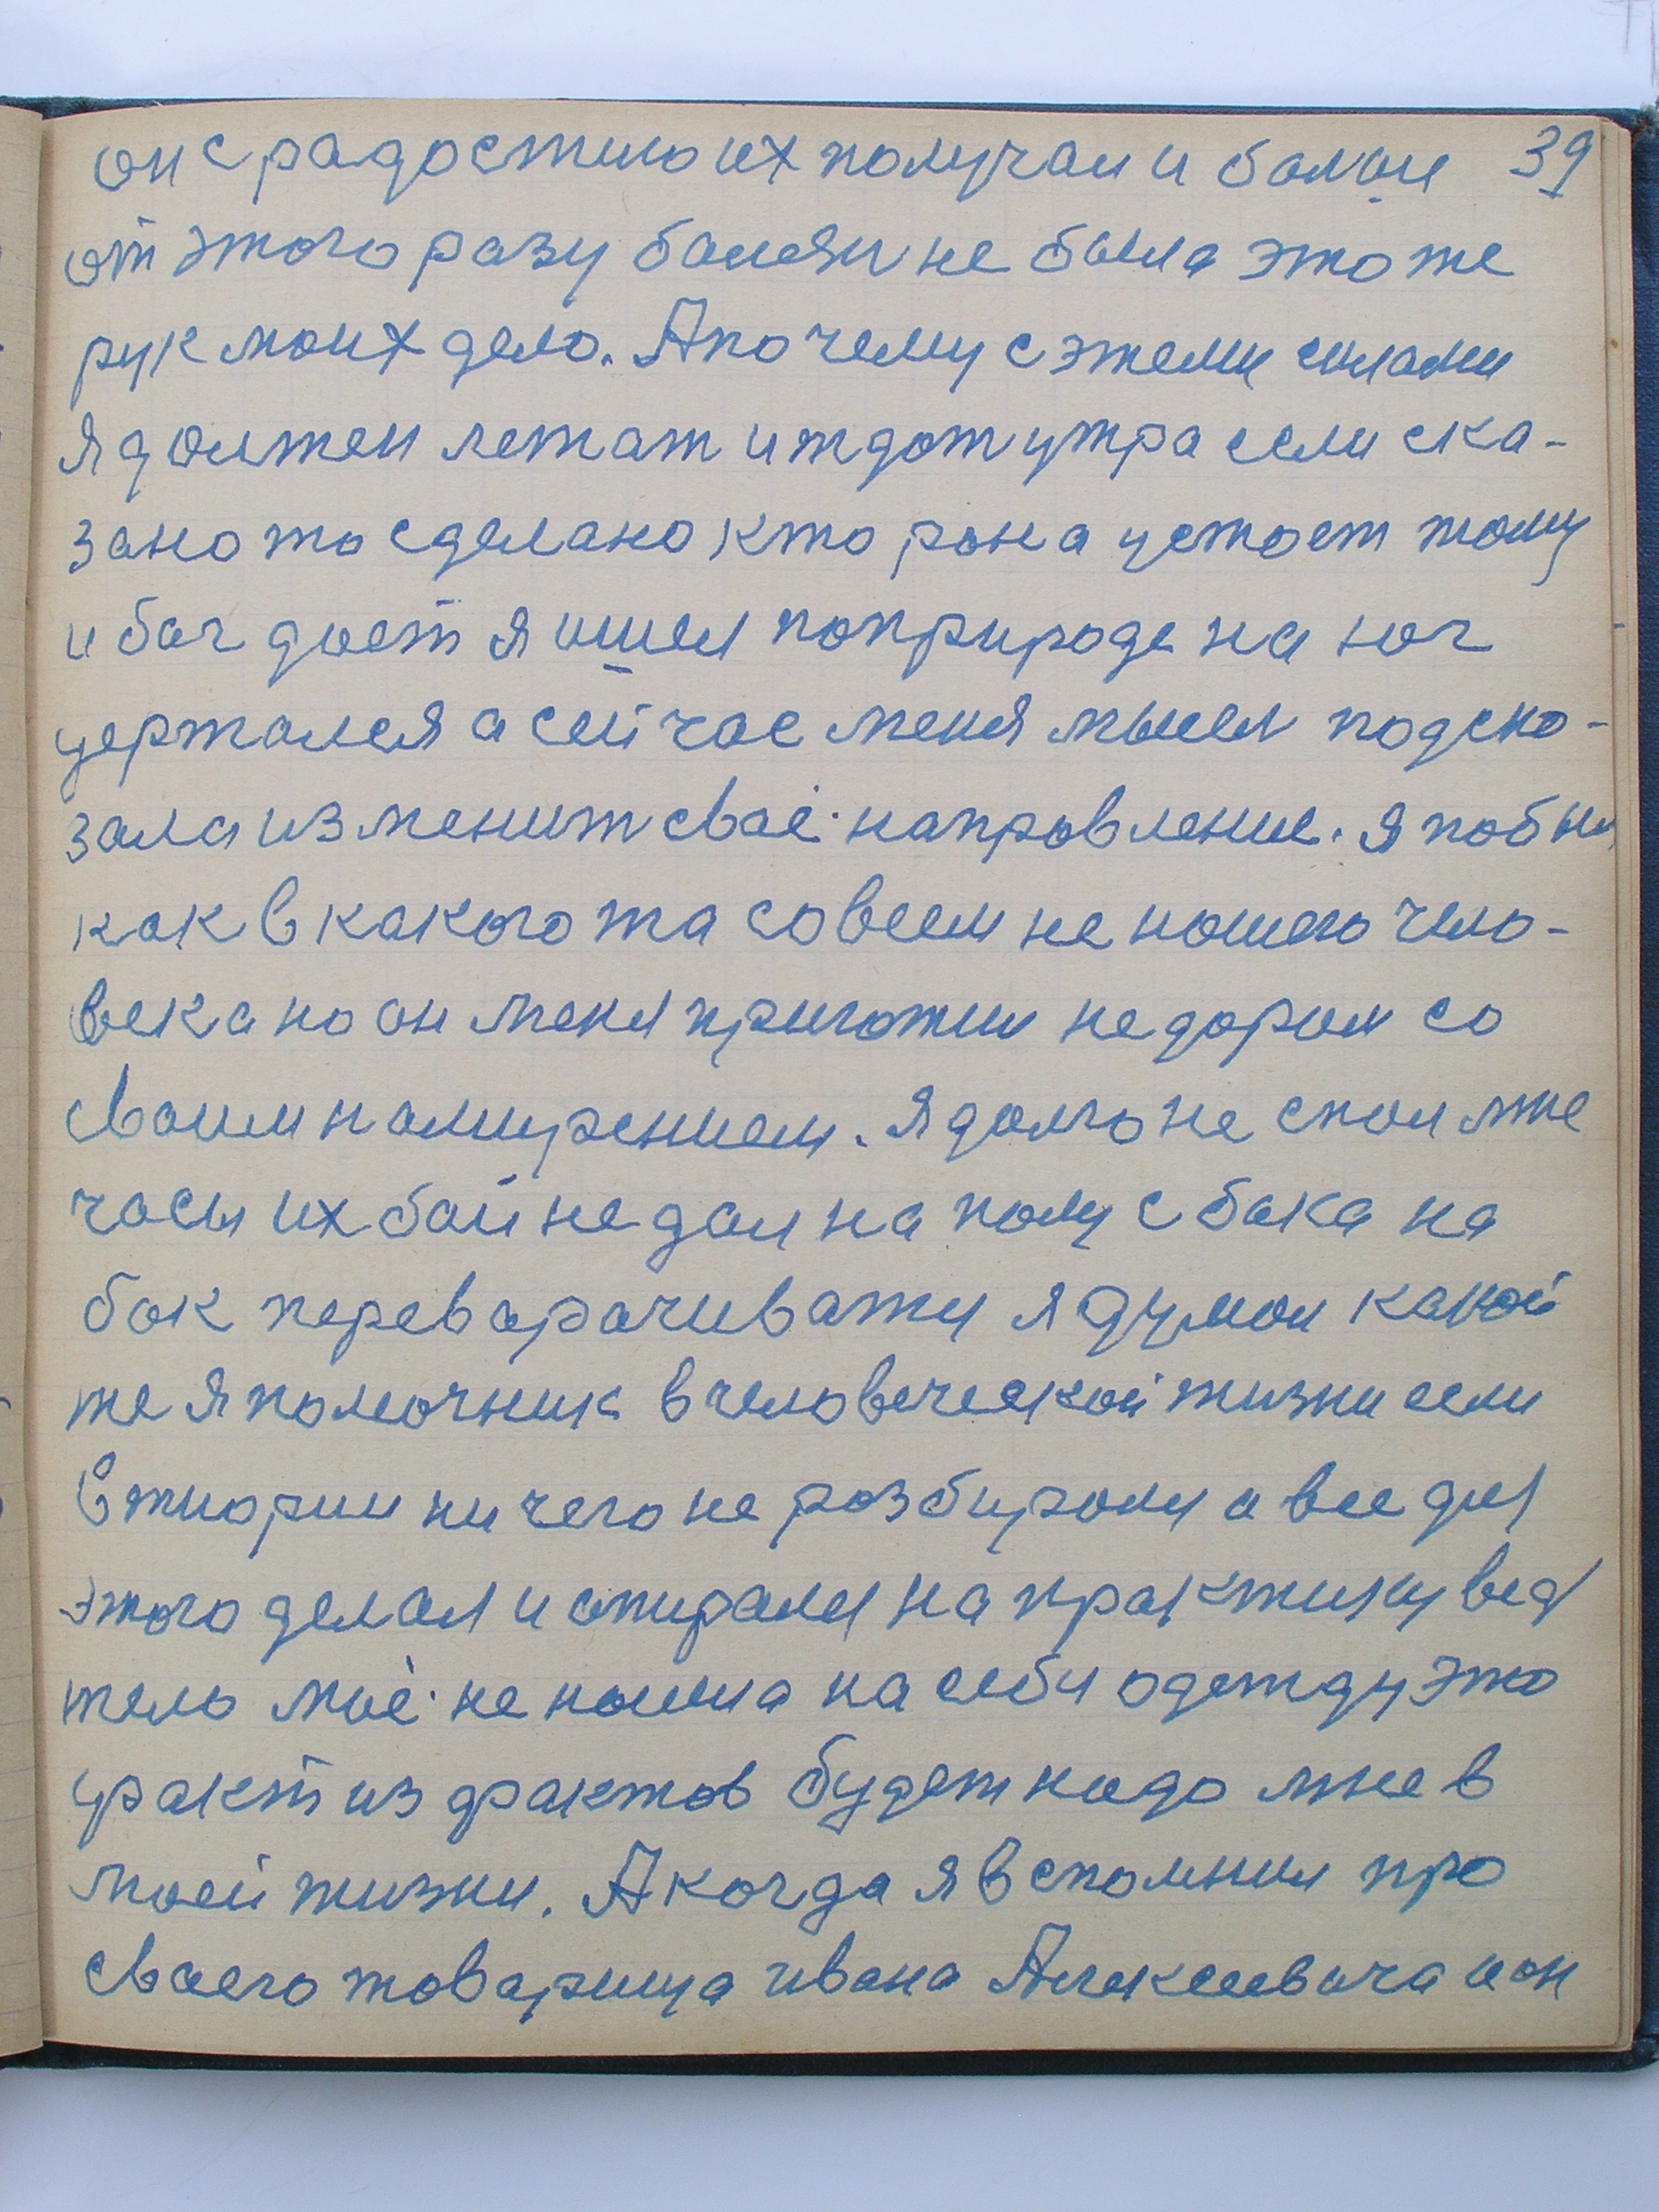 он с радостию их получал и болше 39
от этого разу болезн не была это же
рук моих дело. А почему с этеми силами
я должен лежат и ждат утра если ска-
зано то сделано кто рона устоет тому
и бог дает я ишел по природе на ног
держался а сейчас меня мысел подско-
зала изменит своё напровление. я побыл
как в какого та совсем не нашего чело-
века но он меня пригожил не даром со
своим намирением. я долго не спал мне
часы их бой не дал на полу с бака на
бок переварочиватц я думал какой
же я помочник в человеческой жизни если
в тиории ничего не розбиролц а все для
этого делал и опиралц на практику вед
тело моё не носила на себи одежду это
уракт из фрактов будет надо мне в
моей жизни. А когда я вспомнил про
своего товарища ивана Алексеевича и он